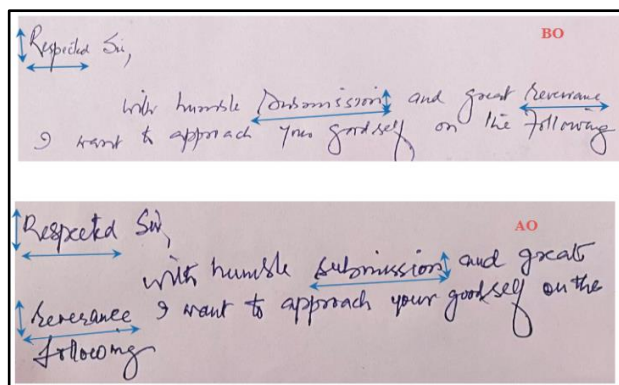 BO
Respected Sir,
with humble submission and great reverance
I want to approach your goodself on the following
AO
Respected Sir,
with humble submission and great
reverance I want to approach your goodself on the
following